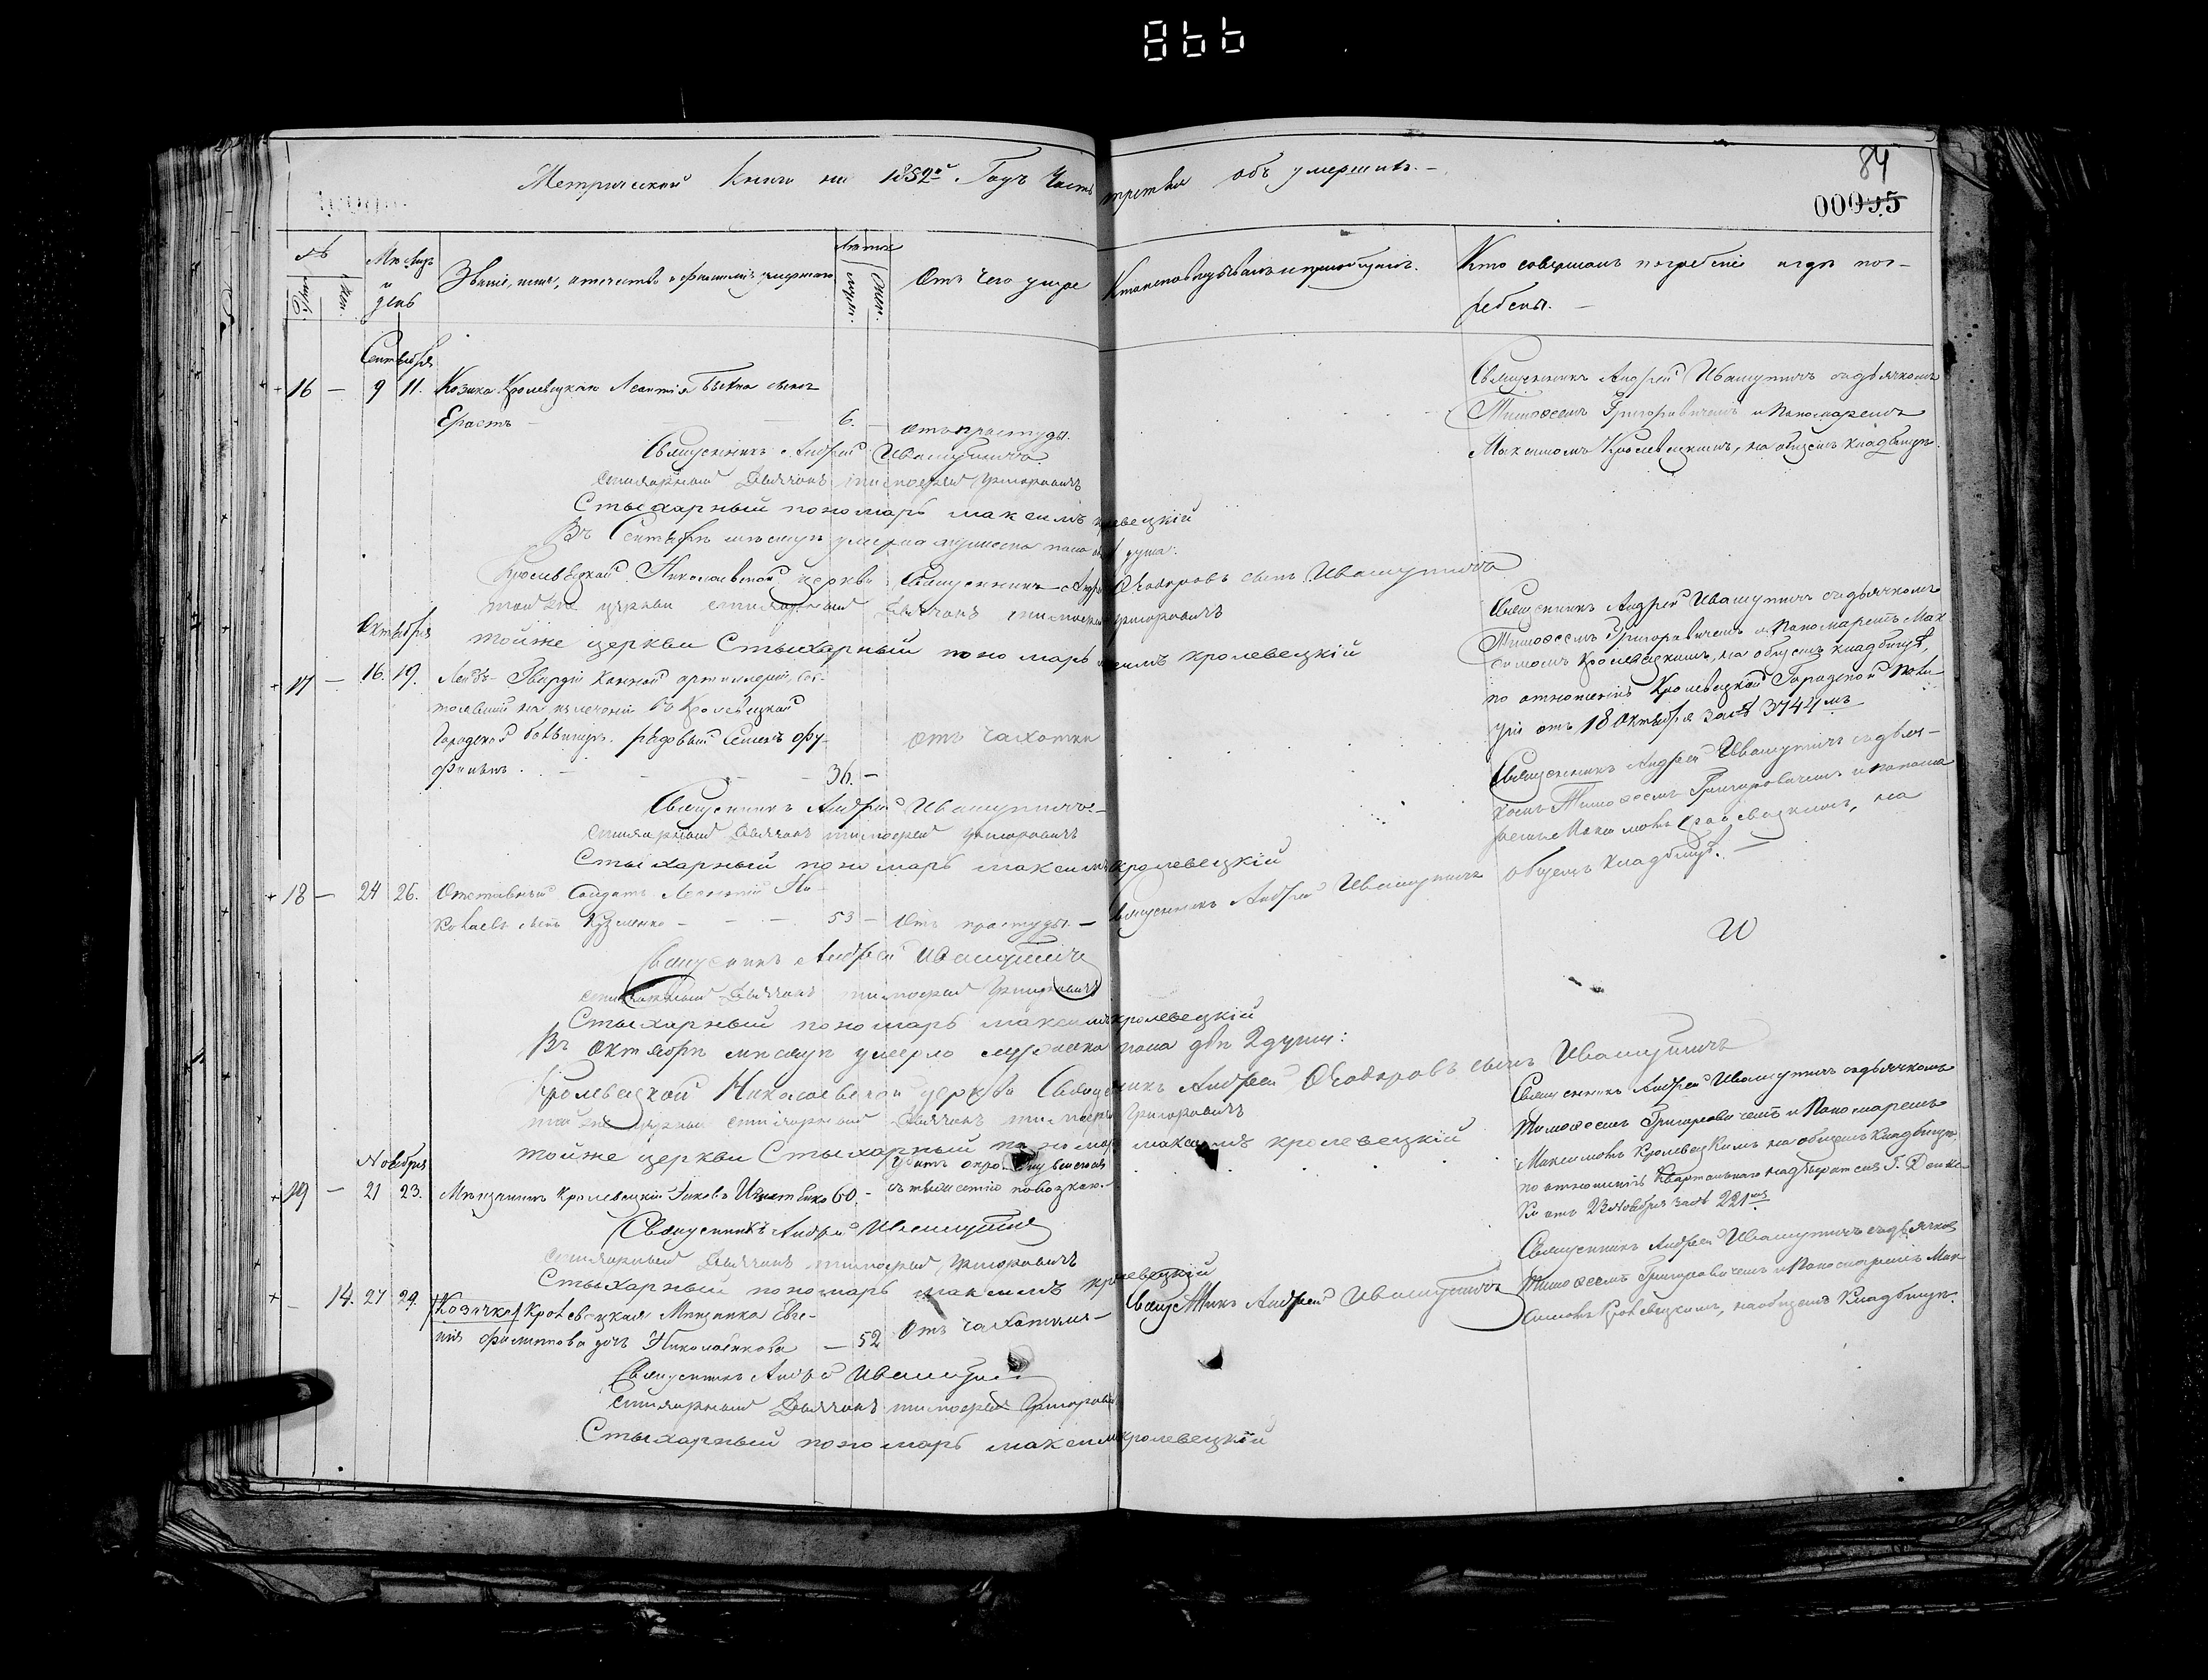 866
84
00095
Метрической Книги на 1852й Годъ Часть третья объ умершихъ.
№
муж.
жен.
Месяцъ и день
Званіе, имя, отчество и фамилія умершаго
Лета
мужс.
женс.
Отъ чего умре
Кто исповедывалъ и приобщалъ.
Кто совершалъ погребеніе и где пог-
ребены.
Сентября
16 — 9 11. Козака Кролевецкаго Леонтія сынъ
Ерастъ 6. отъ простуды.
Священникъ Андрей Ивашутичъ съ дьячкомъ
Тимофеемъ Григоровичемъ и Пономаремъ
Максимомъ Кролевецкимъ, на общемъ кладбище.
Священникъ Андрей Ивашутичъ
стихарный Дьячокъ тимофей Григоровичъ
Стыхарный пономарь максимъ кролевецкій
Въ Сентябре месяце умерла мужеска пола одна 1 душа.
Кролевецкой Николаевской церкви Священникъ Андрей Феодоровъ сынъ Ивашутичъ
тойже церкви стихарный Дьячокъ тимофей Григоровичъ
тойже церкви Стыхарный пономарь максимъ кролевецкій
Октября
17 — 16. 19. Лейбъ-Гвардіи Конной артиллеріи, сос-
тоявшій на излеченіи въ Кролевецкой
Городской больнице рядовый Семенъ
36. — отъ чахотки
Священникъ Андрей Ивашутичъ съ дьячкомъ
Тимофеемъ Григоровичемъ и Пономаремъ Мак
симомъ Кролевецкимъ, на общемъ кладбище,
по отношенію Кролевецкой Городской Поли
ціи отъ 18 Октября за № 3744мъ
Священникъ Андрей Ивашутичъ
стихарный Дьячокъ тимофей Григоровичъ
Стыхарный пономарь максимъ кролевецкій
18 — 24 26. Отставный Солдатъ Леонтій
сынъ Кузменко — 53 — Отъ простуды. — Священникъ Андрей Ивашутичъ
Священникъ Андрей Ивашутичъ съ дья-
комъ Тимофеемъ Григоровичемъ и понома
ремъ Максимомъ Кролевецкимъ, на
общемъ кладбище. —
Священникъ Андрей Ивашутичъ
стихарный Дьячокъ тимофей Григоровичъ
Стыхарный пономарь максимъ кролевецкій
Въ Октябре месяце умерло мужеска пола две 2 души:
Кролевецкой Николаевской церкви Священникъ Андрей Феодоровъ сынъ Ивашутичъ
тойже церкви стихарный Дьячокъ тимофей Григоровичъ
тойже церкви Стыхарный пономарь максимъ кролевецкій
Ноября
19 — 21 23. Мещанинъ Кролевецкій Яковъ 60 — Убитъ
повозкою. —
Священникъ Андрей Ивашутичъ съ дьячкомъ
Тимофеемъ Григоровичемъ и Пономаремъ
Максимомъ Кролевецкимъ на общемъ Кладбище,
по отношенію Квартальнаго надзирателя Г.
отъ 23 Ноября за № 221мъ
Священникъ Андрей Ивашутичъ
стихарный Дьячокъ тимофей Григоровичъ
Стыхарный пономарь максимъ кролевецкій
— 14. 27 29. Козачка Кролевецкая Мещанка Евге-
нія Филиппова дочь Николаенкова — 52 Отъ чахотки — Священникъ Андрей Ивашутичъ
Священникъ Андрей Ивашутичъ съ дьячком
Тимофеемъ Григоровичемъ и Пономаремъ Мак
симомъ Кролевецкимъ, на общемъ Кладбище.
Священникъ Андрей Ивашутичъ
стихарный Дьячокъ тимофей Григоровичъ
Стыхарный пономарь максимъ кролевецкій